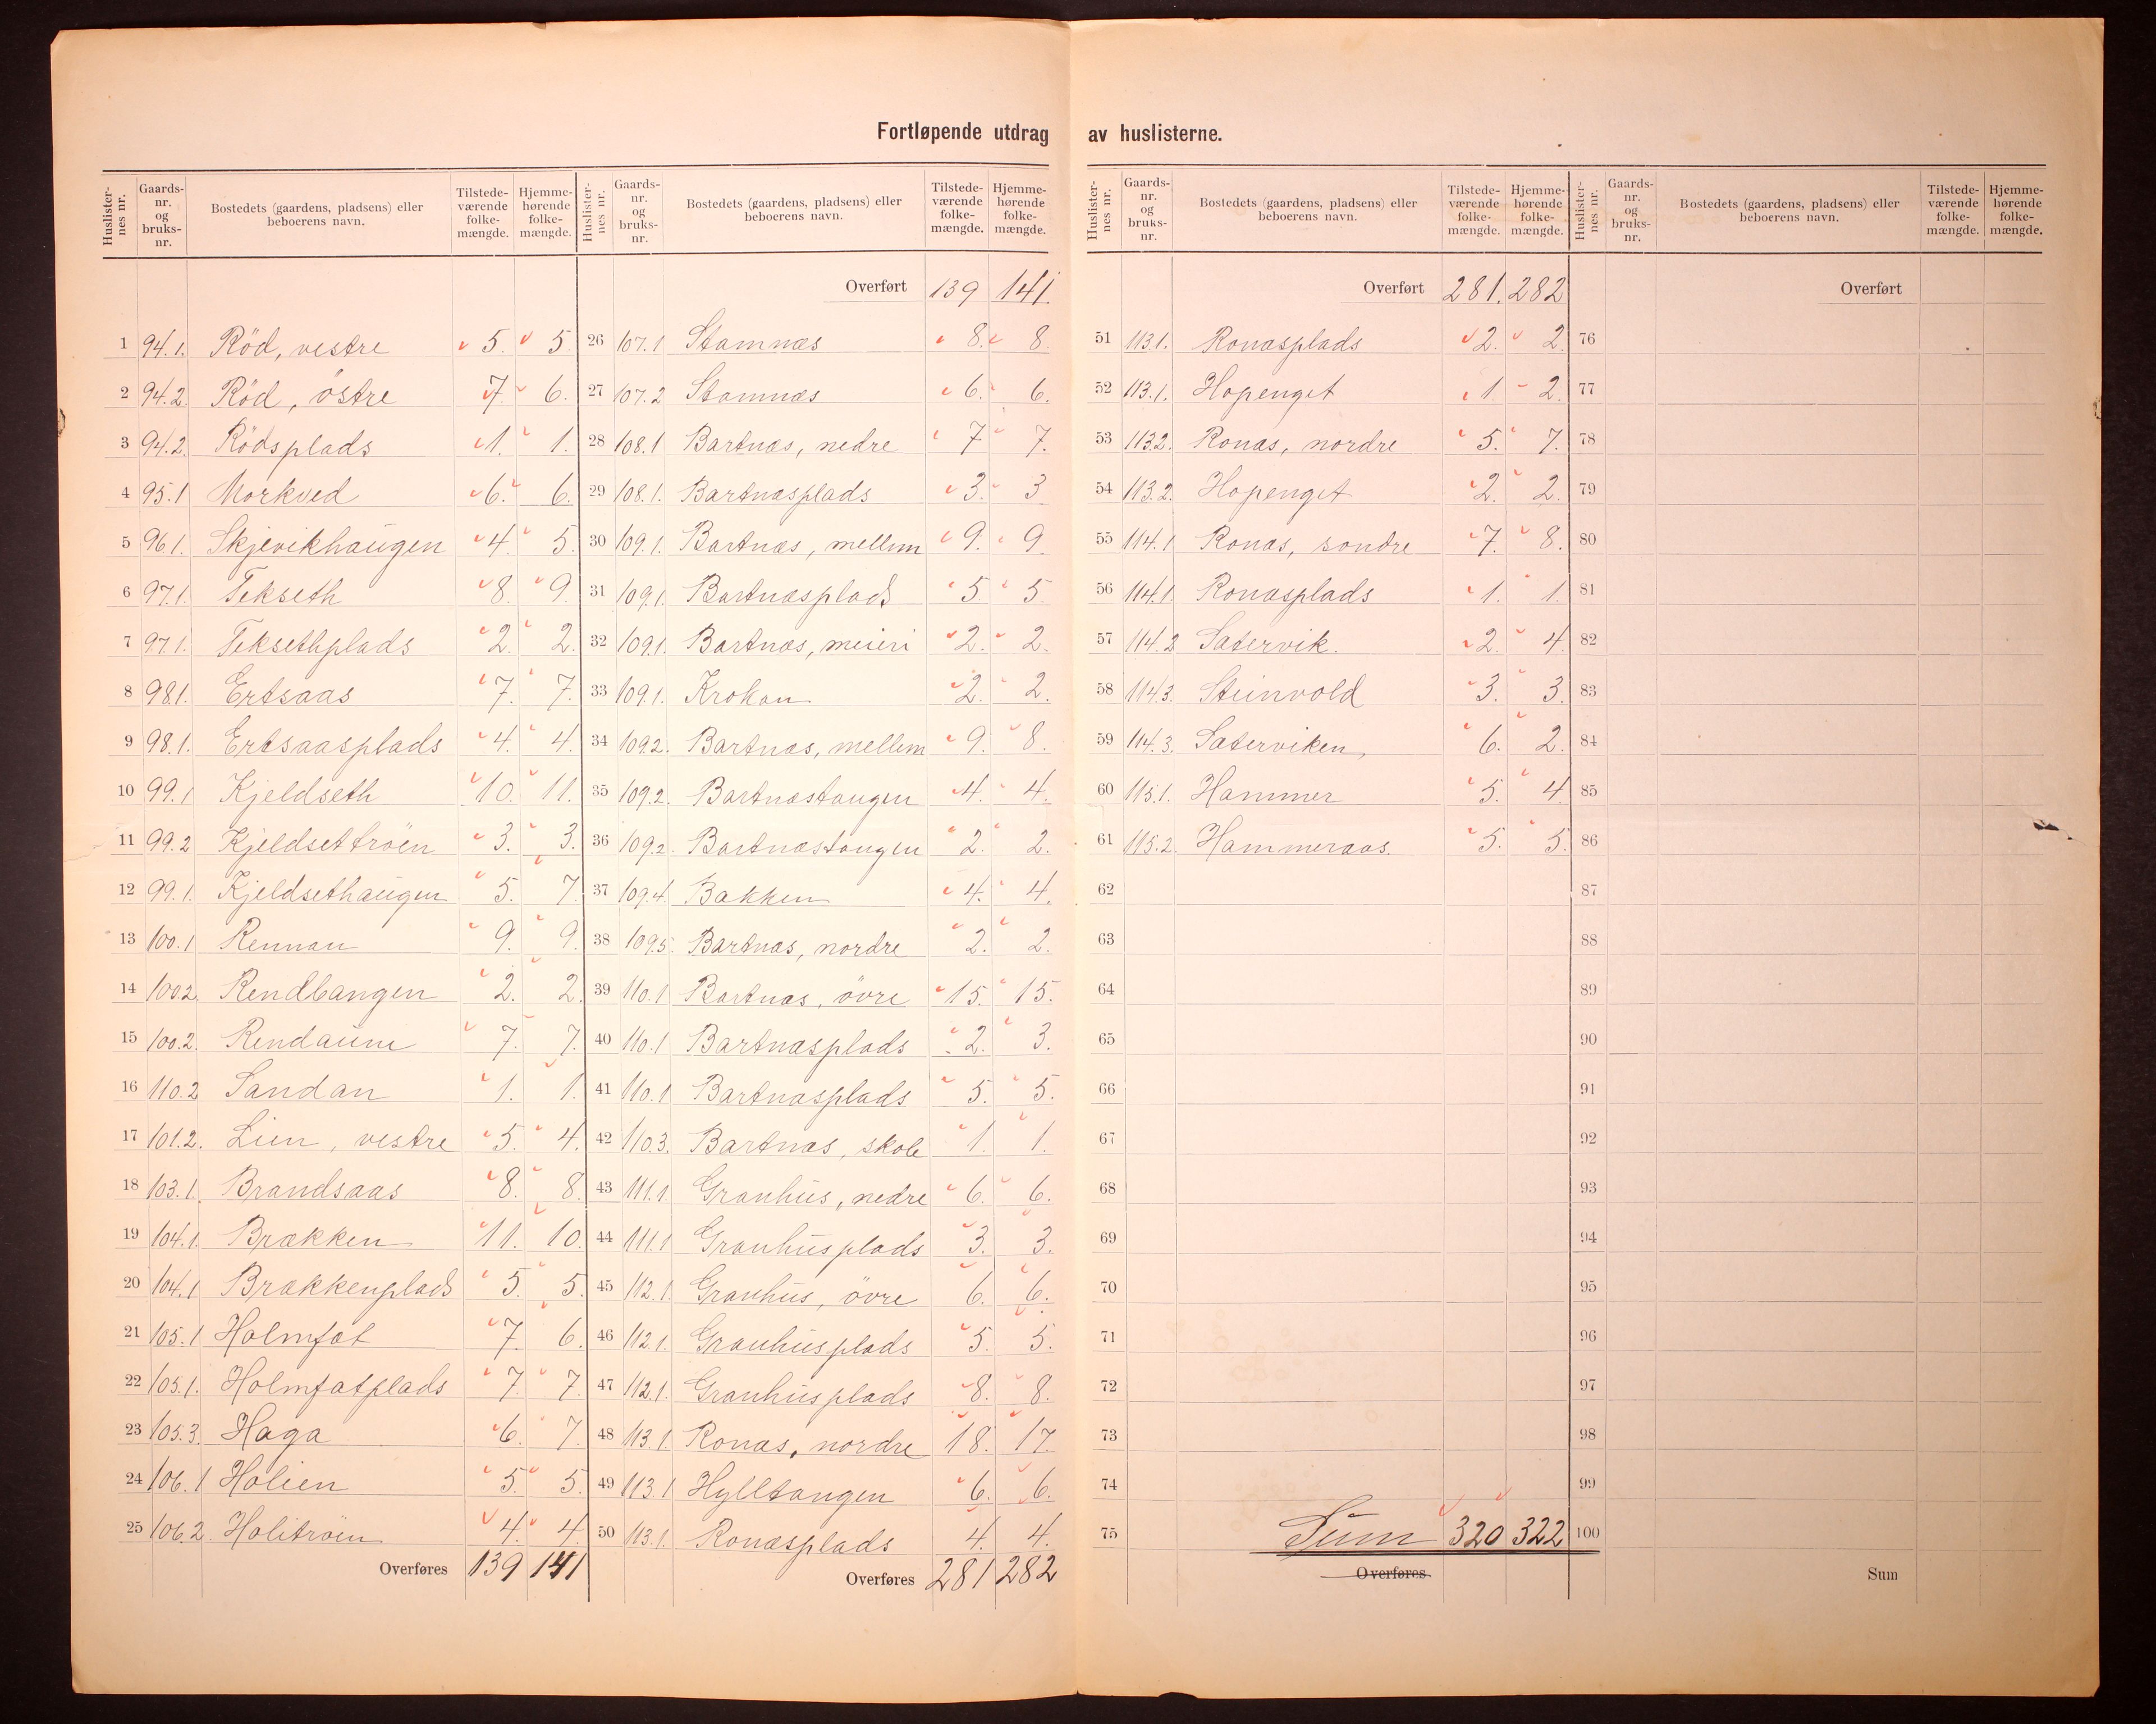 Fortløpende utdrag av huslisterne.
Huslister-nes nr. Gaards-nr. og bruks-nr. Bostedets (gaardens, pladsens) eller beboerens navn. Tilstede-værende folke-mængde. Hjemme-hørende folke-mængde.
1 94.1. Röd, vestre 5. 5.
2 94.2. Röd, östre 7. 6.
3 94.2. Rödsplads 1. 1.
4 95.1 Morkved 6. 6.
5 96.1. Skjevikhaugen 4. 5.
6 97.1. Tekseth 8. 9.
7 97.1. Teksethplads 2. 2.
8 98.1. Ertsaas 7. 7.
9 98.1. Ertsaasplads 4. 4.
10 99.1 Kjeldseth 10. 11.
11 99.2 Kjeldsettröen 3. 3.
12 99.1. Kjeldsethaugen 5. 7.
13 100.1 Rennan 9. 9.
14 100.2. Rendbangen 2. 2.
15 100.2. Rendaune 7. 7.
16 110.2 Sandan 1. 1.
17 101.2. Lien, vestre 5. 4.
18 103.1. Brandsaas 8. 8.
19 104.1. Brækken 11. 10.
20 104.1 Brækkenplads 5. 5.
21 105.1 Holmfat 7. 6.
22 105.1. Holmfatplads 7. 7.
23 105.3. Haga 6. 7.
24 106.1 Holien 5. 5.
25 106.2. Holitröen 4. 4.
Overføres 139 141
Huslister-nes nr. Gaards-nr. og bruks-nr. Bostedets (gaardens, pladsens) eller beboerens navn. Tilstede-værende folke-mængde. Hjemme-hørende folke-mængde.
Overført 139 141.
26 107.1 Stamnæs 8. 8.
27 107.2 Stamnæs 6. 6.
28 108.1 Bartnæs, nedre 7 7.
29 108.1. Bartnæsplads 3. 3
30 109.1. Bartnæs, mellem 9. 9.
31 109.1. Bartnæsplads 5 5.
32 109.1. Bartnæs, meieri 2. 2.
33 109.1. Krokan 2. 2.
34 109.2. Bartnæs, mellem 9. 8.
35 109.2. Bartnæstangen 4. 4.
36 109.2. Bartnæstangen 2. 2.
37 109.4. Bakken 4. 4.
38 109.5. Bartnæs, nordre 2. 2.
39 110.1 Bartnæs, övre 15. 15.
40 110.1 Bartnæsplads 2. 3.
41 110.1 Bartnæsplads 5. 5.
42 110.3. Bartnæs, skole 1. 1.
43 111.1. Granhus, nedre 6. 6.
44 111.1 Granhusplads 3. 3.
45 112.1. Granhus, övre 6. 6.
46 112.1. Granhusplads 5. 5.
47 112.1. Granhusplads 8. 8.
48 113.1. Ronæs, nordre 18. 17.
49 113.1 Hylltangen 6. 6.
50 113.1. Ronæsplads 4. 4.
Overføres 281 282
Huslister-nes nr. Gaards-nr. og bruks-nr. Bostedets (gaardens, pladsens) eller beboerens navn. Tilstede-værende folke-mængde. Hjemme-hørende folke-mængde.
Overført 281. 282
51 113.1. Ronæsplads 2. 2.
52 113.1. Hopenget 1 2.
53 113.2. Ronæs, nordre 5. 7.
54 113.2. Hopenget 2. 2.
55 114.1 Ronæs, söndre 7. 8.
56 114.1. Ronæsplads 1. 1.
57 114.2 Sætervik. 2. 4.
58 114.3. Steinvold 3. 3.
59 114.3. Sæterviken, 6. 2.
60 115.1. Hammer 5. 4.
61 115.2. Hammeraas. 5. 5.
62
63
64
65
66
67
68
69
70
71
72
73
74
75 Sum 320 322
Overføres
Huslister-nes nr. Gaards-nr. og bruks-nr. Bostedets (gaardens, pladsens) eller beboerens navn. Tilstede-værende folke-mængde. Hjemme-hørende folke-mængde.
Overført
76
77
78
79
80
81
82
83
84
85
86
87
88
89
90
91
92
93
94
95
96
97
98
99
100
Sum